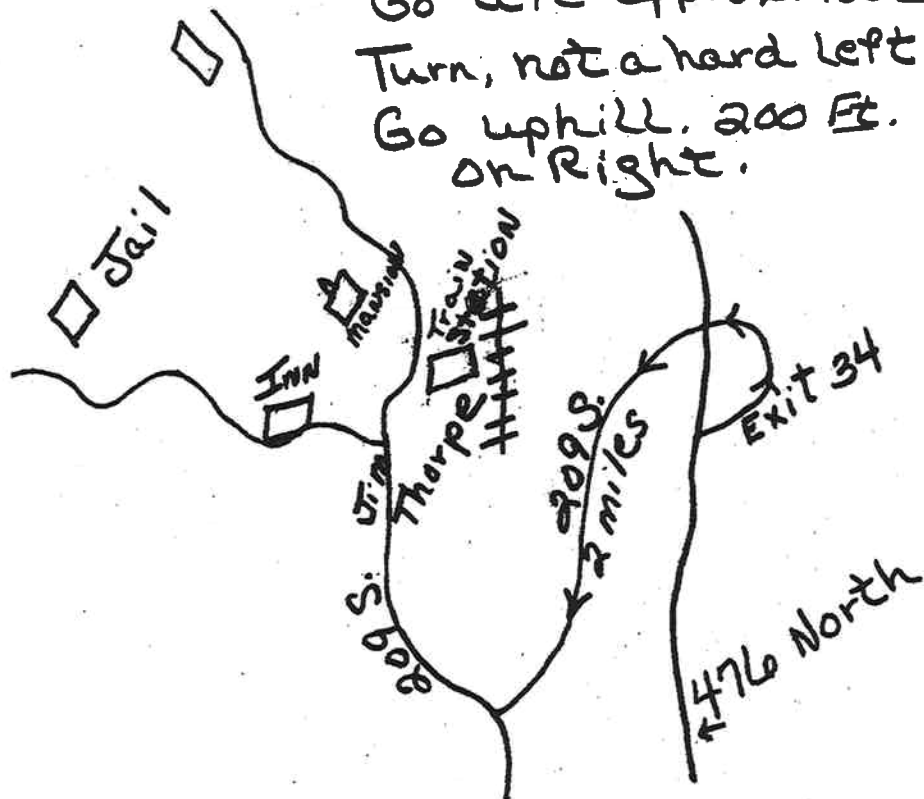 Go
Turn, not a hard Left
Go uphill. 200 Ft.
on Right.
Jail
Mansion
Train
Station
Inn
Jim
Thorpe
209 S.
2 miles
Exit 34
209 S.
476 North